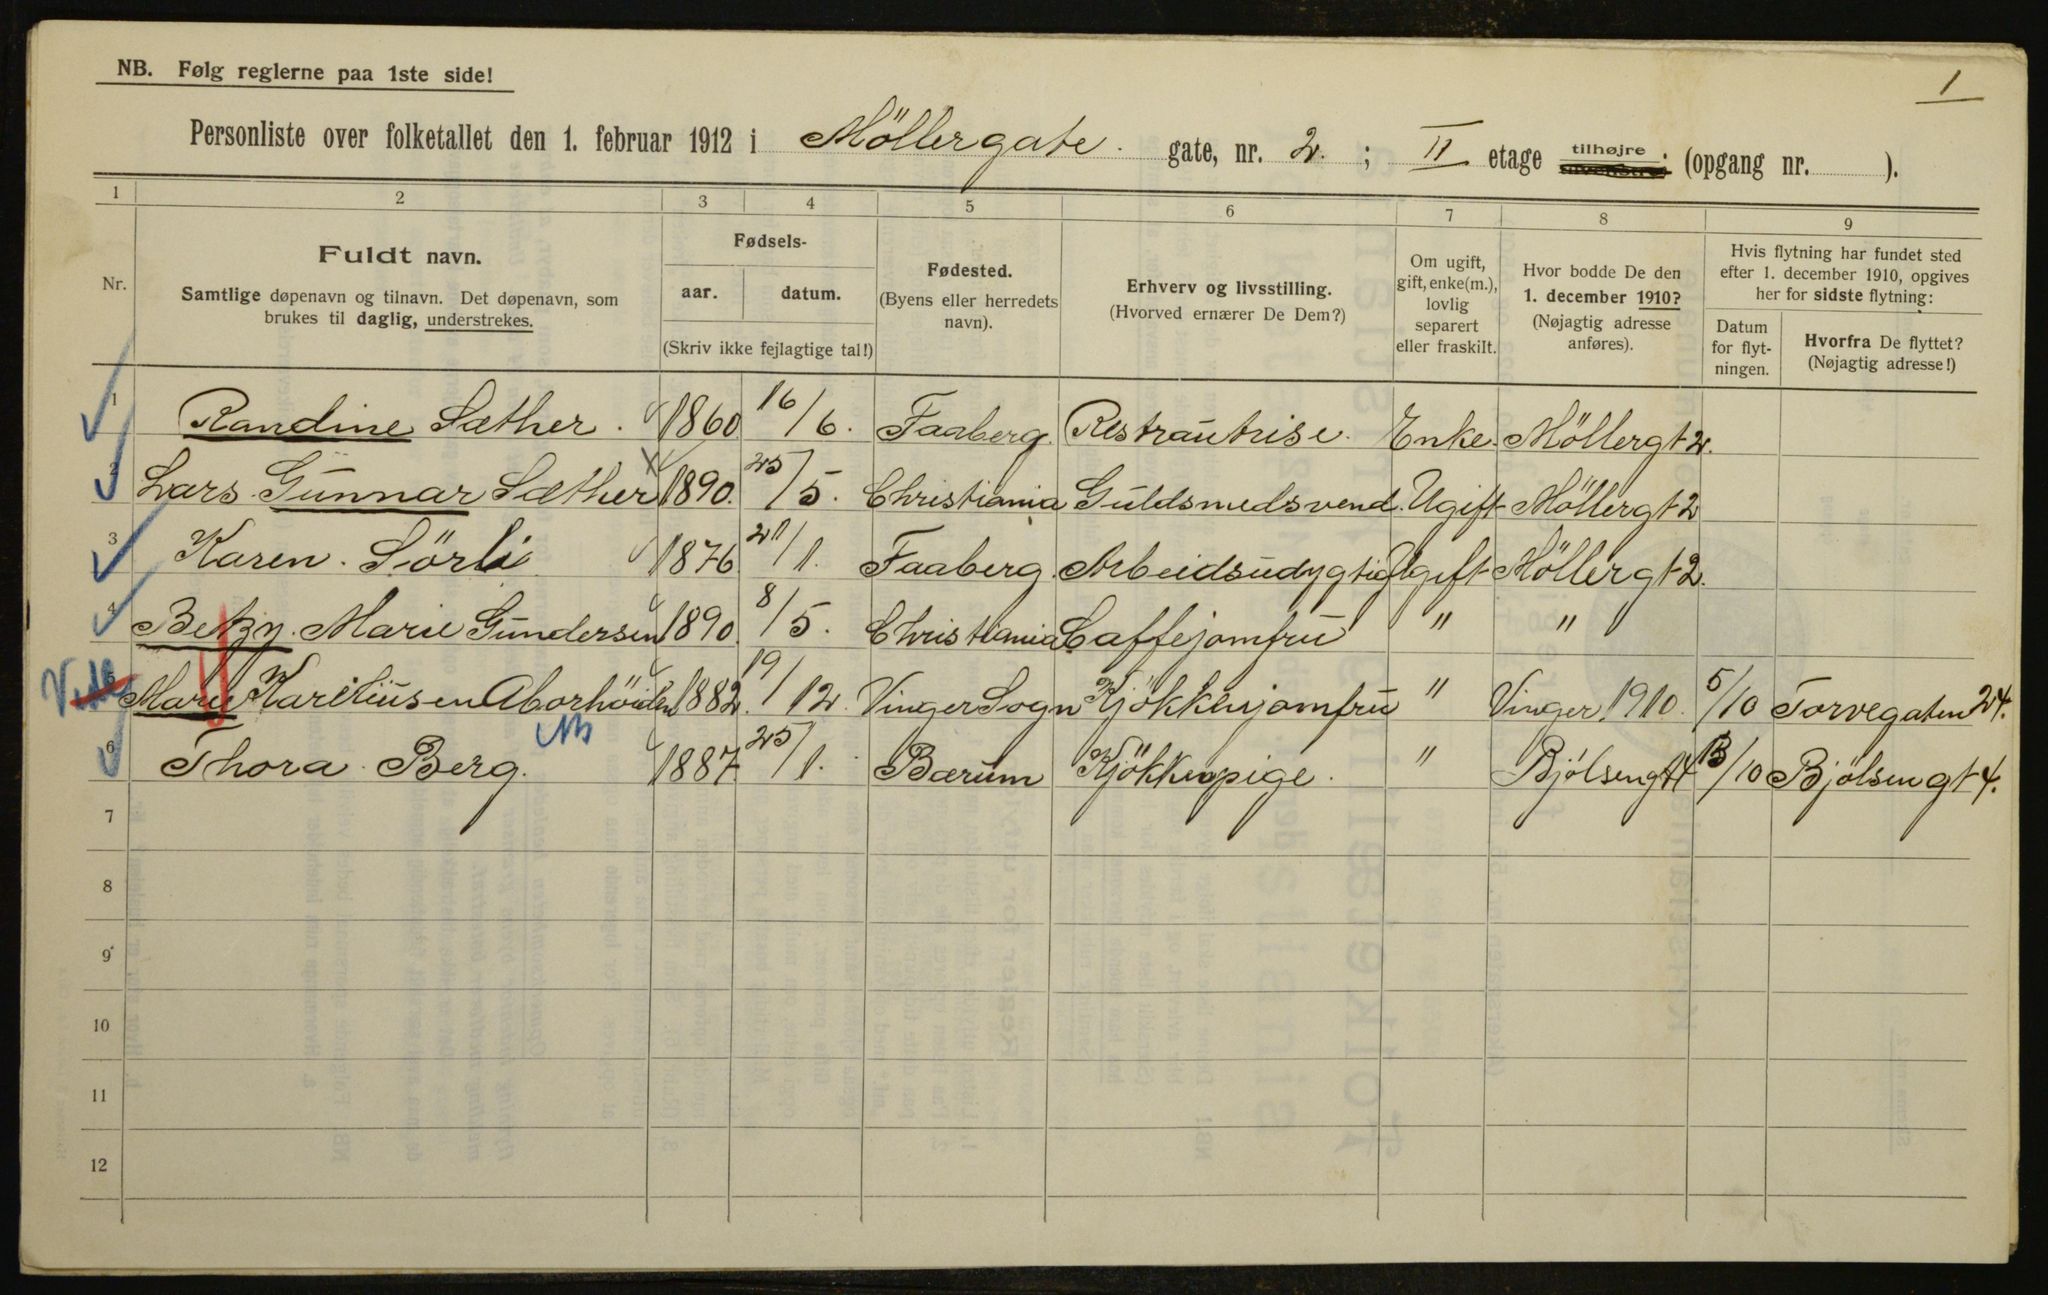 1
NB. Følg reglerne paa 1ste side!
Personliste over folketallet den 1. februar 1912 i Möllergate. gate, nr. 2. ; II etage tilhøjre tilvenstre; (opgang nr. ).
1 2 3 4 5 6 7 8 9
Nr.
Fuldt navn.
Samtlige døpenavn og tilnavn. Det døpenavn, som
brukes til daglig, understrekes.
Fødsels-
aar. datum.
(Skriv ikke fejlagtige tal!)
Fødested.
(Byens eller herredets
navn).
Erhverv og livsstilling.
(Hvorved ernærer De Dem?)
Om ugift,
gift, enke(m.),
lovlig
separert
eller fraskilt.
Hvor bodde De den
1. december 1910?
(Nøjagtig adresse
anføres).
Hvis flytning har fundet sted
efter 1. december 1910, opgives
her for sidste flytning:
Datum
for flyt-
ningen.
Hvorfra De flyttet?
(Nøjagtig adresse!)
1 Randine Sæther. 1860 16/6. Faaberg. Restrautrise. Enke. Möllergt 2.
2 Lars Gunnar Sæther 1890. 25/5. Christiania Guldsmedsvend. Ugift Möllergt 2
3 Karen. Sörli 1876. 21/1. Faaberg. Arbeidsudygtig Ugift Möllergt 2.
4 Betzy. Marie Gundersen 1890. 8/5. Christiania Caffejomfru " "
5 Marie Karelius en 1882. 19/12. Vinger Sogn Kjökkenjomfru " Vinger 1910. 5/10 Torvegaten 24.
6 Thora Berg. 1887 25/1. Bærum Kjökkenpige. " Bjölsengt 4 13/10 Bjölsengt 4.
7
8
9
10
11
12